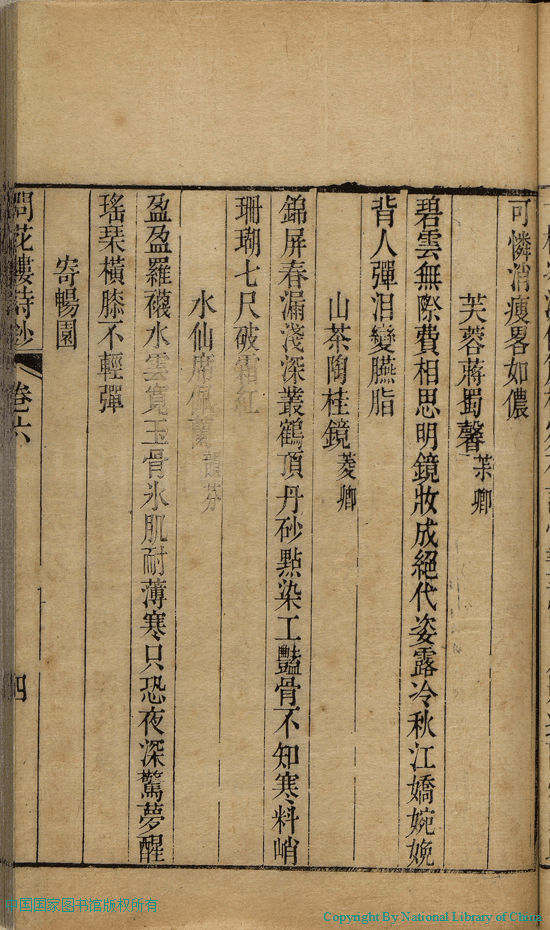 可憐消瘦畧如儂
芙蓉蔣蜀馨芙卿
碧雲無際費相思明鏡妝成絕代姿露冷秋江嬌婉娩
背人彈泪變臙脂
山茶陶桂鏡菱卿
錦屏春漏淺深叢鶴頂丹砂點染工豔骨不知寒料峭
珊瑚七尺破霜紅
水仙席佩蘭韻芬
盈盈羅襪水雲寬玉骨氷肌耐薄寒只恐夜深驚夢醒
瑤琹橫膝不輕彈
寄暢園
問花樓詩鈔 卷六 四
中国国家图书馆版权所有
Copyright By National Library of China